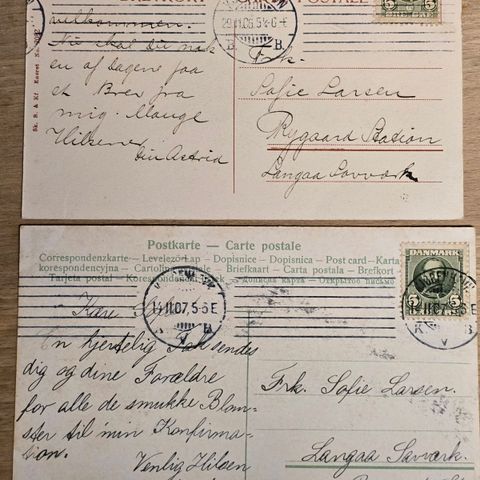 BREVKORT
velkommen.
Nu skal Du nok
en af Dagene faa
et Brev fra
mig. Mange
Hilsener
din Astrid
29.11.06.5½-6-E
B. B.
5 5
Frk.
Sofie Larsen
Rygaard Station
Langaa Savværk.
Postkarte — Carte postale
Correspondenzkarte — Levelező-Lap — Dopisnice — Dopisnica — Post card — Karta
korespondencyjna — Cartolina postale — Briefkaart — Carta postale — Brefkort
Tarjeta postal — Korespondenční
Открытое письмо
DANMARK
5 5
14.11.07.5-6E
K B
V
Kære
En hjertelig Tak sendes
dig og dine Forældre
for alle de smukke Blom-
ster til min Konfirma-
tion.
Venlig Hilsen
Frk. Sofie Larsen.
Langaa Savværk.